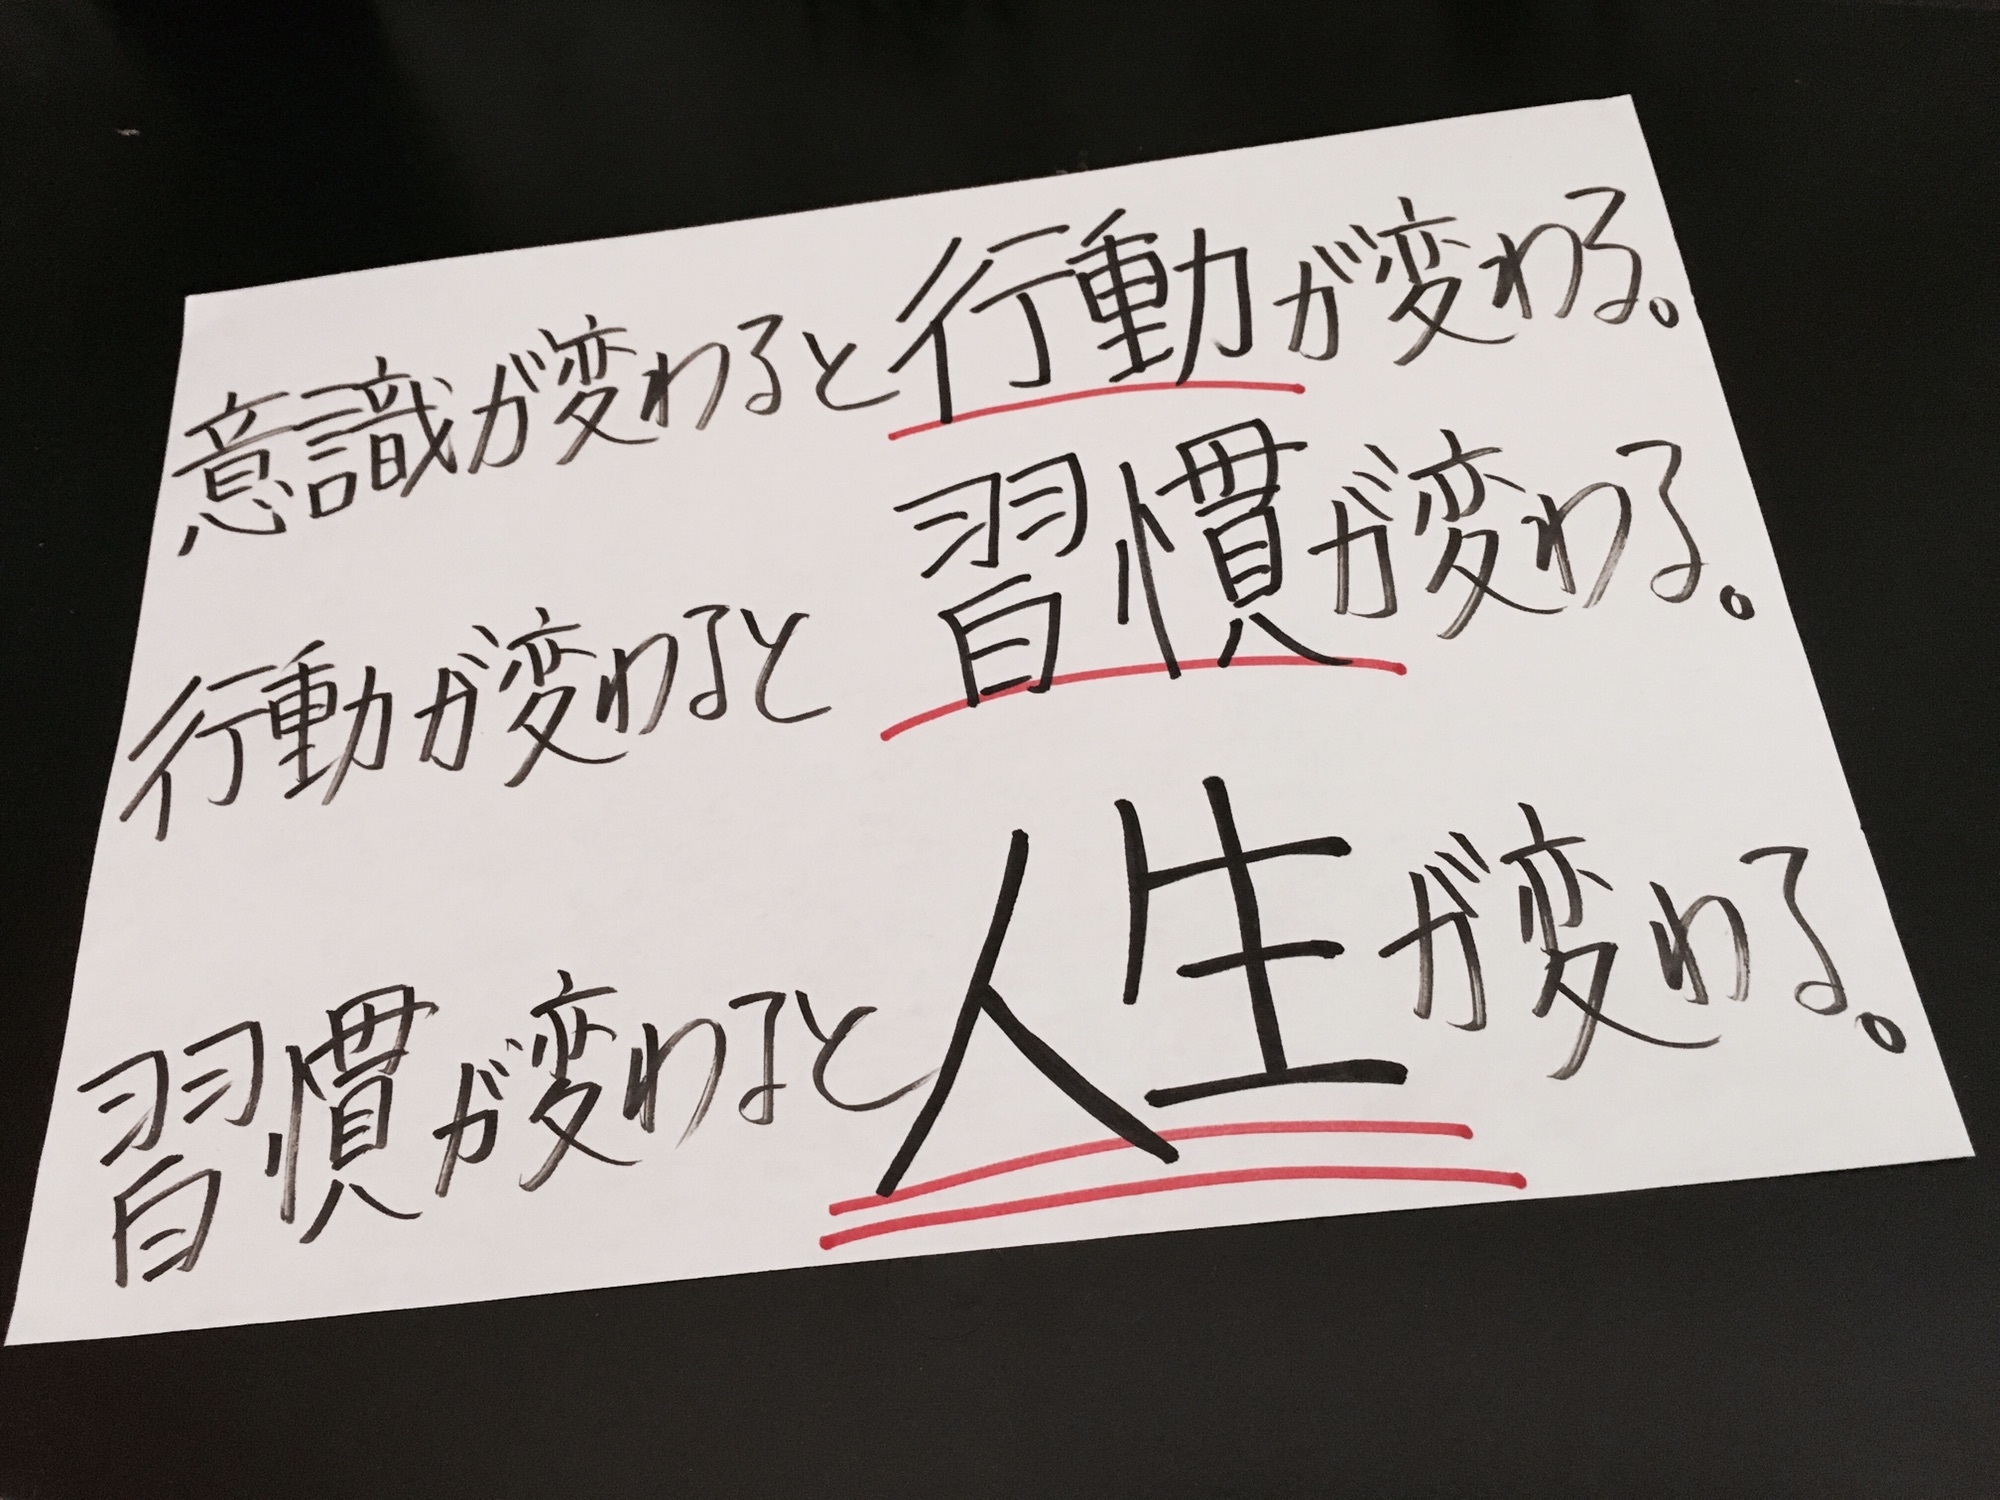 意識が変わると行動が変わる。
行動が変わると習慣が変わる。
習慣が変わると人生が変わる。